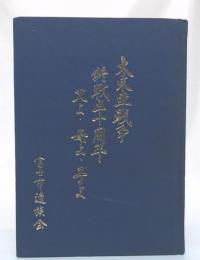 大東亜戦争
終戦五十周年
父よ・母よ・子よ
富士市遺族会